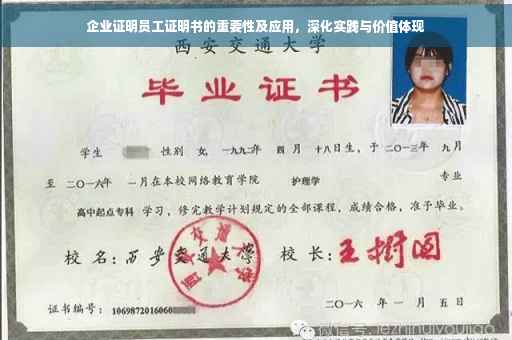 企业证明员工证明书的重要性及应用，深化实践与价值体现
西安交通大学
毕业证书
学生 性别 女，一九九二年 四月 十八日生，于二〇一三年 九月
至 二〇一六年 一月在本校网络教育学院 护理学 专业
高中起点专科 学习，修完教学计划规定的全部课程，成绩合格，准予毕业。
校 名：西安交通大学 校 长：王树国
西安交通大学
证书编号：1069872016060
二〇一六 年 一 月 五 日
微信号: jezhihuiyoujiao